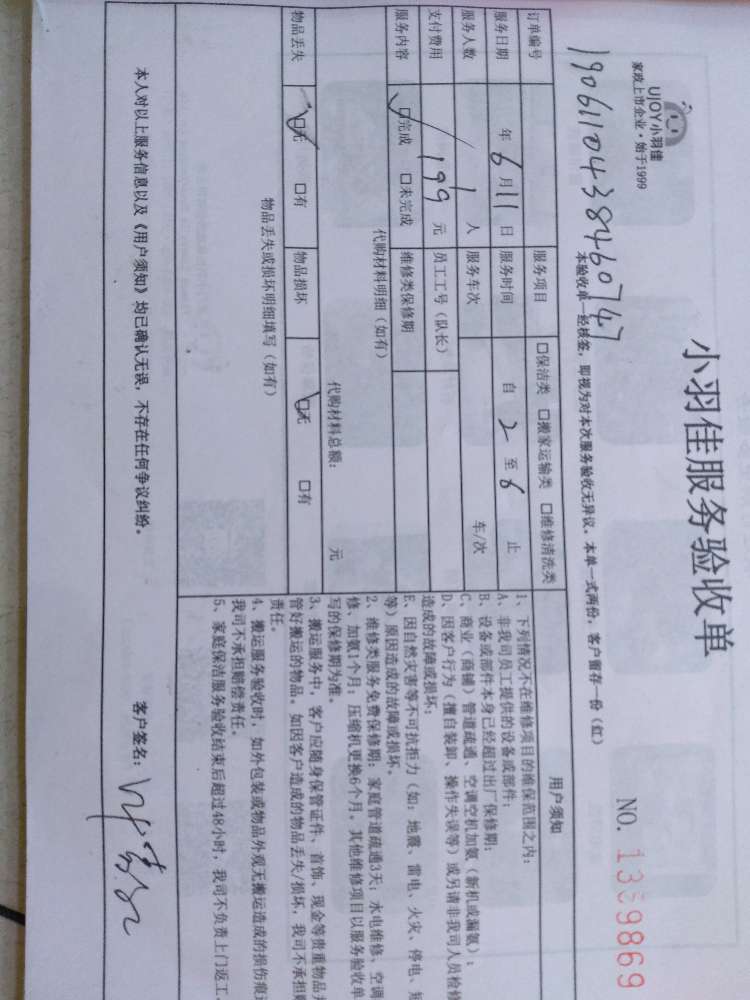 UJOY小羽佳
家政上市企业·始于1999
小羽佳服务验收单
NO. 1339869
1906110438460747
本验收单一经核签，即视为对本次服务验收无异议。本单一式两份，客户留存一份（红）
订单编号 服务项目 口保洁类 口搬家运输类 口维修清洗类
服务日期 年 6 月 11 日 服务时间 自 2 至 6 止
服务人数 1 人 服务车次 车/次
支付费用 199 元 员工工号（队长）
服务内容 口完成 口未完成 维修类保修期
代购材料明细（如有）
代购材料总额： 元
物品丢失 口无 口有 物品损坏 口无 口有
物品丢失或损坏明细填写（如有）
用户须知
1、下列情况不在维修项目的维保范围之内：
A、非我司员工提供的设备或部件；
B、设备或部件本身已经超过出厂保修期；
C、商业（商铺）管道疏通、空调空机加氨（新机或漏氨）；
D、因客户行为（擅自装卸、操作失误等）或另请非我司人员检修
造成的故障或损坏；
E、因自然灾害等不可抗拒力（如：地震、雷电、火灾、停电、短
等）原因造成的故障或损坏。
2、维修类服务免费保修期：家庭管道疏通3天；水电维修、空调
修、加氨1个月；压缩机更换6个月。其他维修项目以服务验收单
写的保修期为准。
3、搬运服务中，客户应随身保管证件、首饰、现金等贵重物品并
管好搬运的物品。如因客户造成的物品丢失/损坏，我司不承担
责任。
4、搬运服务验收时，如外包装或物品外观无搬运造成的损伤痕迹
我司不承担赔偿责任。
5、家庭保洁服务验收结束后超过48小时，我司不负责上门返工。
本人对以上服务信息以及《用户须知》均已确认无误，不存在任何争议纠纷。 客户签名：